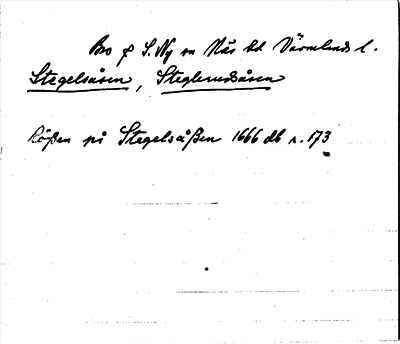 Bro f S. Ny sn Näs hd Värmlands l.
Stegelsåsen, Steglerudsåsen
Råßen på Stegelsåßen 1666 db n. 173